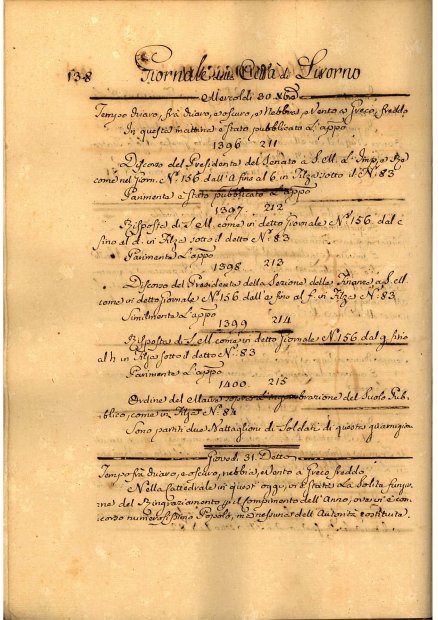 138 Giornale della Città di Livorno
Mercoldì 30 Xbre
Tempo chiaro, frà chiaro, e oscuro, e Nebbia, e Vento a Greco, freddo
In questa mattina è stato pubblicato L'appo
1396 211
Discorso del Presidente del Senato a S.M. L'Imp. e Re
come nel giorn. N.º 156. dall'A fino al 6. in Filza sotto il N.º 83
Parimente è stato pubblicato L'appo
1397. 212
Risposte di S.M. come in detto Giornale N.º 156. dal c
fino al d. in Filza sotto il detto N.º 83
Parimente L'appo
1398 213
Discorso del Presidente della Sezione delle a S.M.
come in detto Giornale N.º 156 dall'e fino al f. in Filza N.º 83
Similmente L'appo
1399 214
Risposta di S.M. come in detto Giornale N.º 156. dal g. fino
al h in Filza sotto il detto N.º 83
Parimente L'appo
1400. 215
Ordine del Maire sopra L'ingombrazione del Suolo Pub-
blico, come in Filza N.º 84
Sono partiti due Battaglioni di Soldati di questa guarnigione
Giovedì 31. Detto
Tempo frà chiaro, e oscuro, nebbia, e Vento a Greco freddo
Nella Cattedrale in quest'oggi, vi è stata La Solita funzio-
ne del Ringraziamento p. il compimento dell'Anno, ove vi è con-
corso numerosissimo Popolo, ma nessuna dell'Autorità costituite.